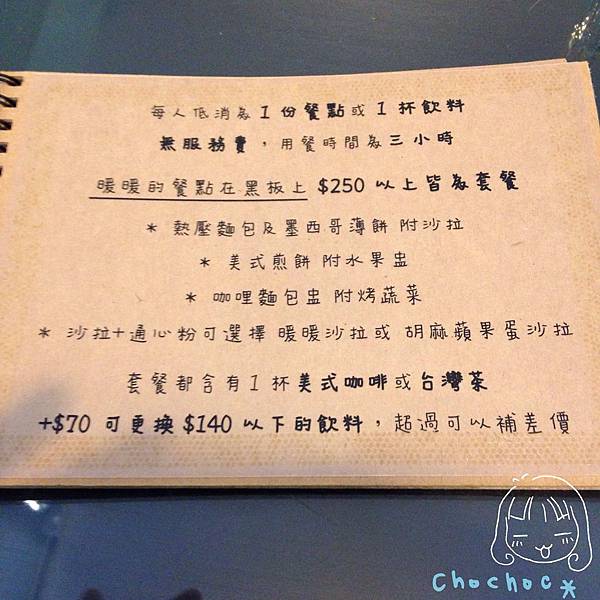 每人低消為1份餐點或1杯飲料
無服務費，用餐時間為三小時
暖暖的餐點在黑板上 $250 以上皆為套餐
* 熱壓麵包及墨西哥薄餅 附沙拉
* 美式煎餅 附水果盅
* 咖哩麵包盅 附烤蔬菜
* 沙拉+通心粉可選擇 暖暖沙拉或 胡麻蘋果蛋沙拉
套餐都含有1杯美式咖啡或台灣茶
+$70 可更換 $140 以下的飲料，超過可以補差價
chochoc*